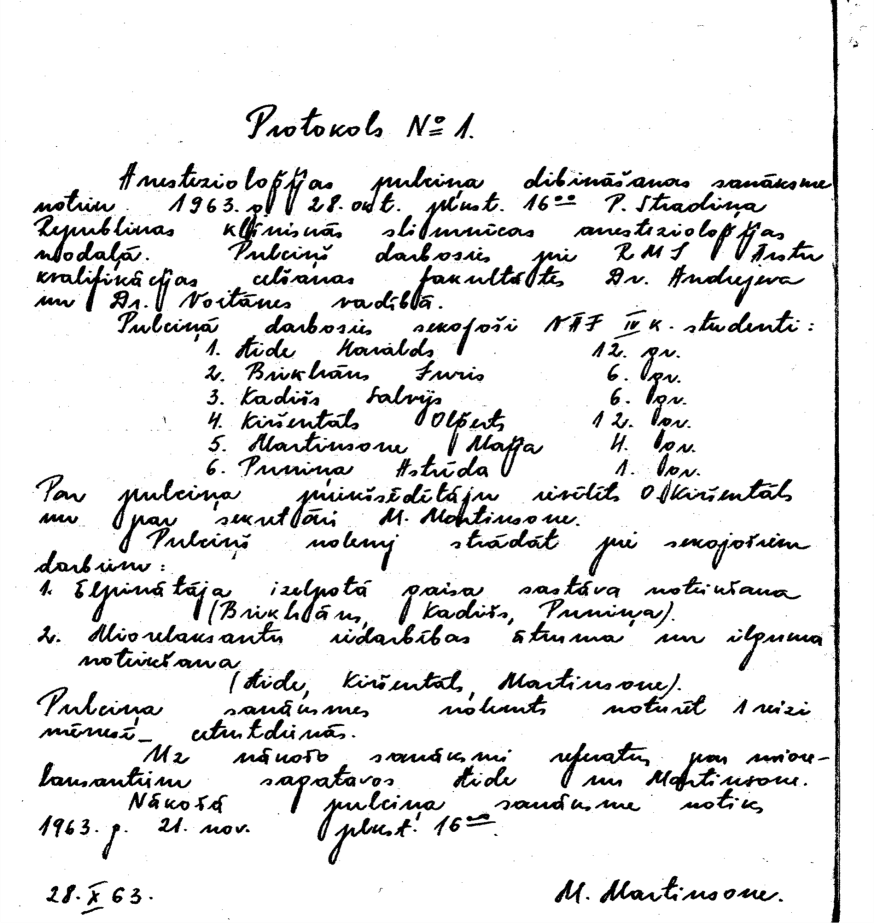 Protokols № 1.
Anestezioloģijas pulciņa dibināšanas sanāksme
notiek 1963. g. 28. okt. plkst. 16⁰⁰ P. Stradiņa
Republikas klīniskās slimnīcas anestezioloģijas
nodaļā. Pulciņš darbosies pie RMI Ārstu
kvalifikācijas celšanas fakultātes Dr. Andrejeva
un Dr. Voitānes vadībā.
Pulciņā darbosies sekojoši IV k. studenti:
1. Aide Haralds 12. gr.
2. Brikhāns Juris 6. gr.
3. Kadiķis Salvijs 6. gr.
4. Kiršentāls Olģerts 12. gr.
5. Martinsone Maija 4. gr.
6. Pūniņa Astrīda 1. gr.
Par pulciņa priekšsēdētāju ievēlēts O. Kiršentāls
un par sekretāri M. Martinsone.
Pulciņš nolemj strādāt pie sekojošiem
darbiem:
1. Elpinātāja izelpotā gaisa sastāva noteikšana
(Brikhāns, Kadiķis, Pūniņa).
2. Miorelaksantu iedarbības ātruma un ilguma
noteikšana
(Aide, Kiršentāls, Martinsone).
Pulciņa sanāksmes nolemts noturēt 1 reizi
mēnesī - ceturtdienās.
Uz nākošo sanāksmi referatus par miore-
laksantiem sagatavos Aide un Martinsone.
Nākošā pulciņa sanāksme notiks
1963. g. 21. nov. plkst. 16⁰⁰.
28. X 63.
M. Martinsone.